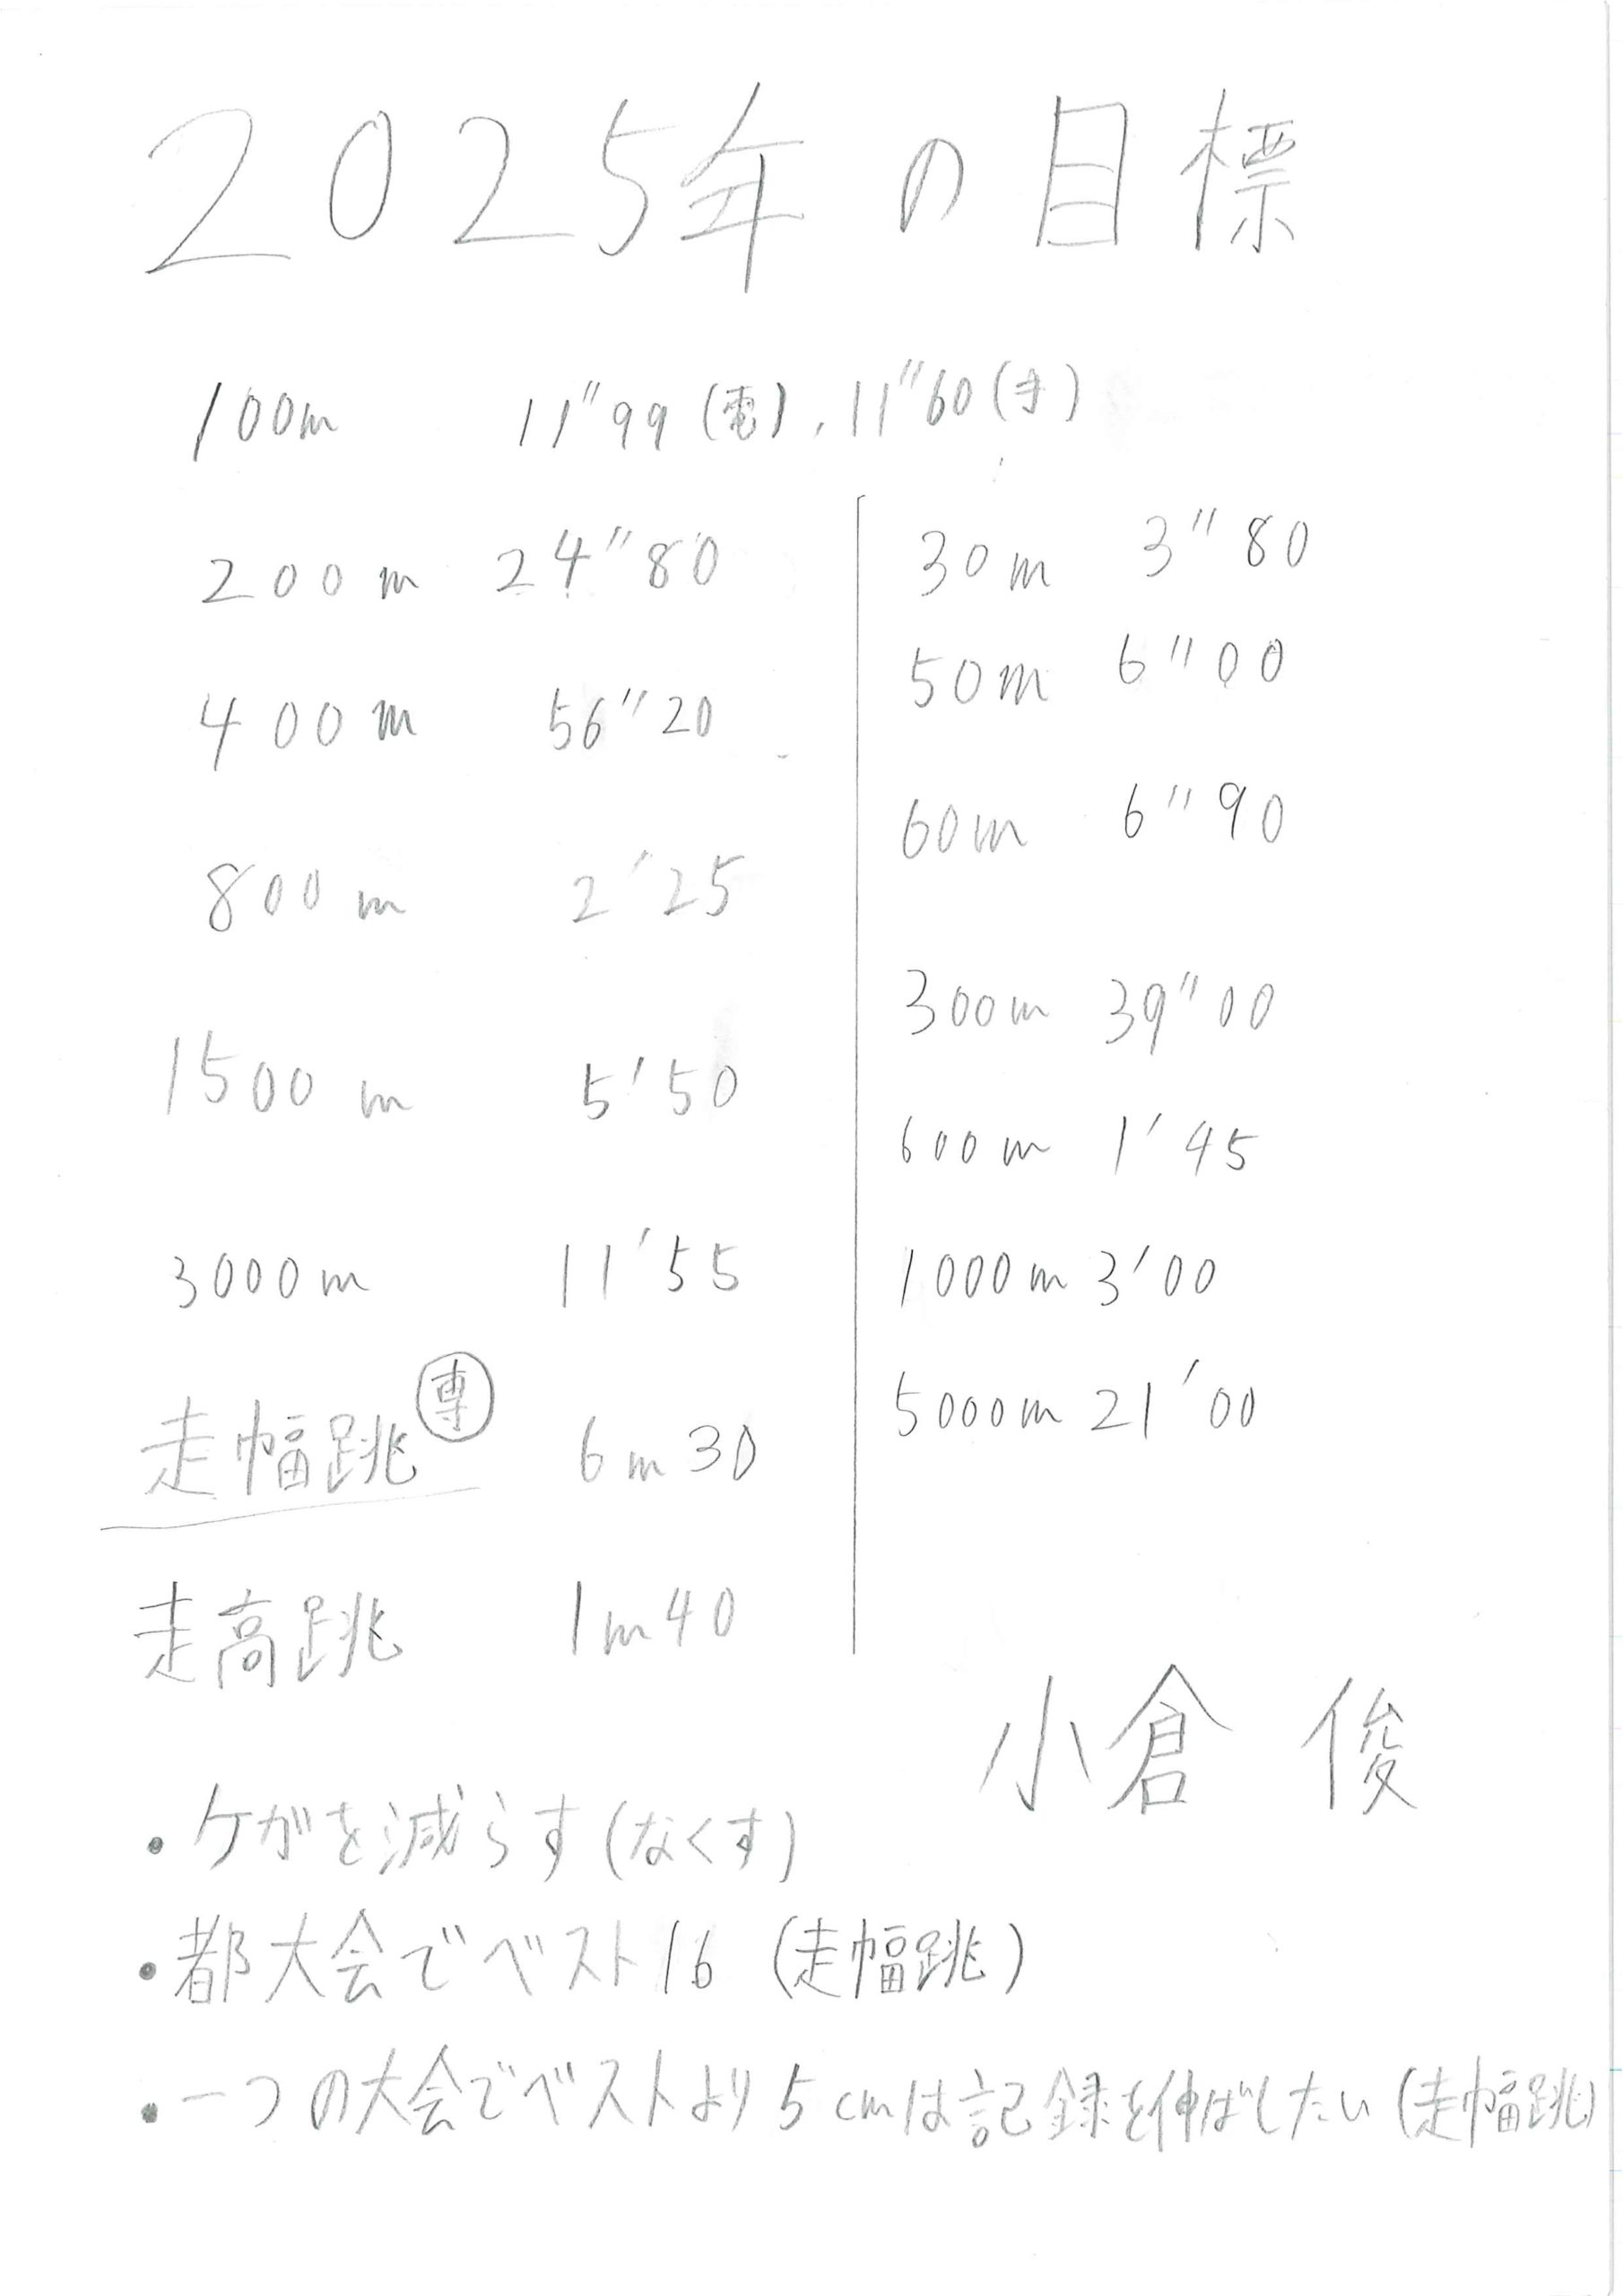 2025年の目標
100m 11"99(電), 11"60(手)
200m 24"80
400m 56"20
800m 2'25
1500m 5'50
3000m 11'55
走幅跳 専 6m30
走高跳 1m40
30m 3"80
50m 6"00
60m 6"90
300m 39"00
600m 1'45
1000m 3'00
5000m 21'00
小倉 俊
・ケガを減らす(なくす)
・都大会でベスト16 (走幅跳)
・一つの大会でベストより5cmは記録を伸ばしたい(走幅跳)